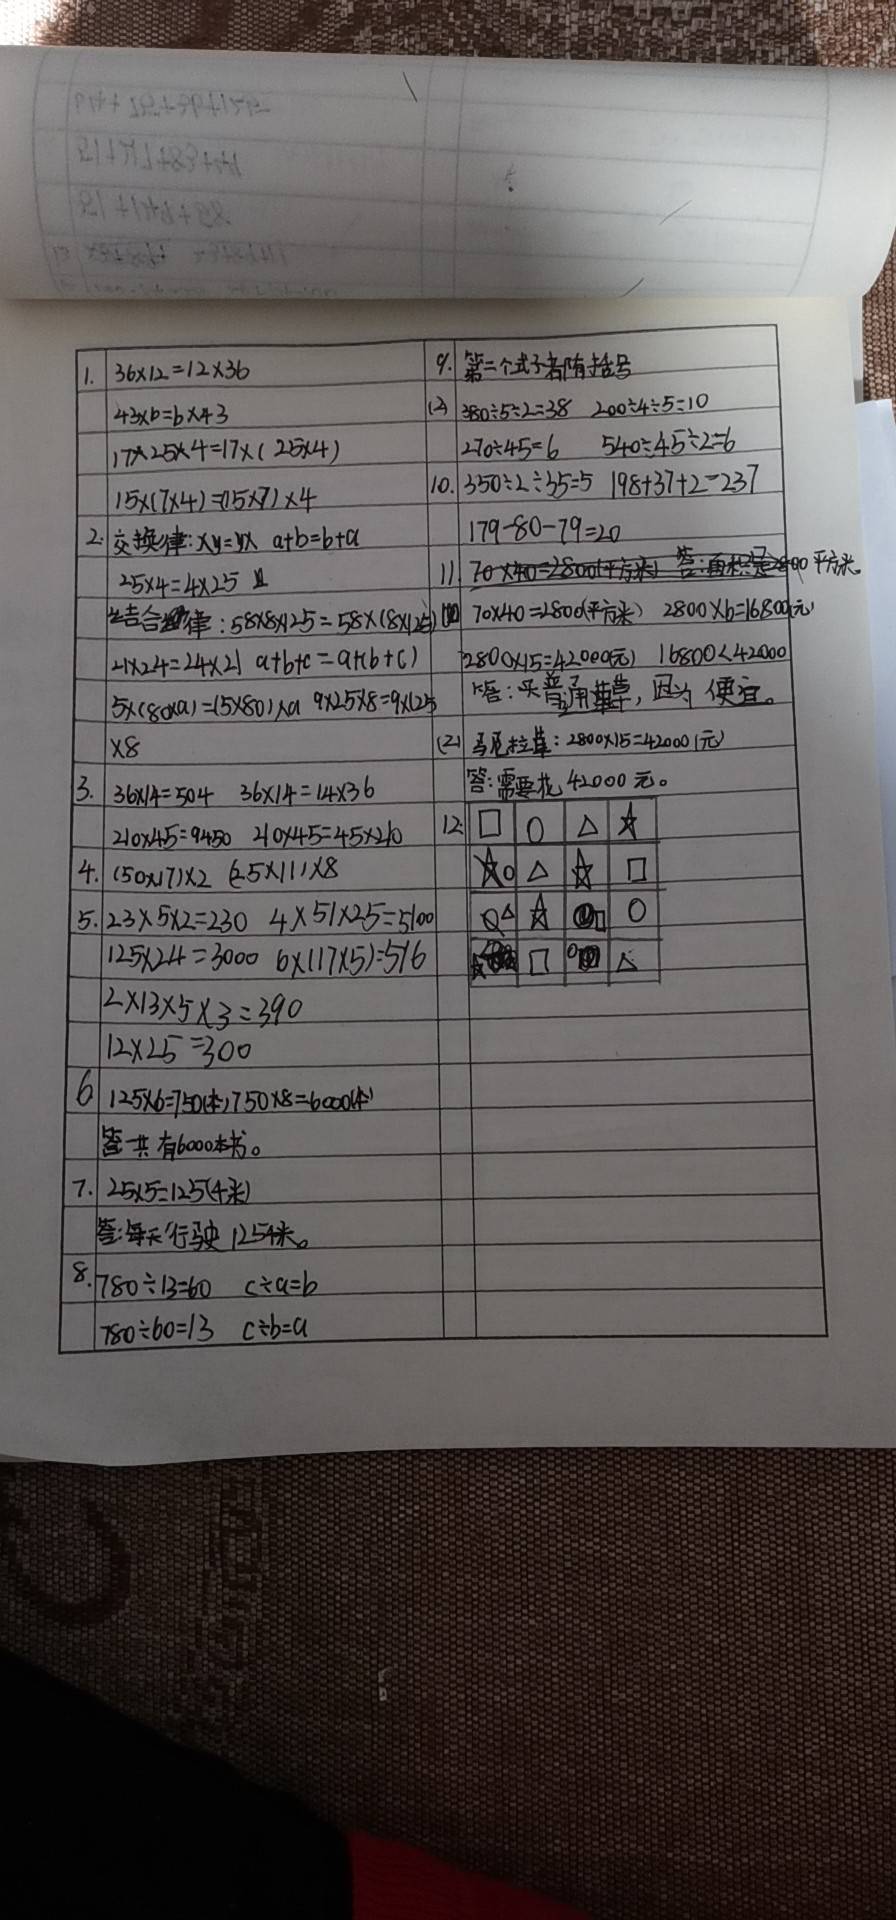 1. 36×12=12×36
43×b=b×43
17×25×4=17×(25×4)
15×(7×4)=(15×7)×4
2. 交换律:xy=yx a+b=b+a
25×4=4×25
结合律:58×8×125=58×(8×125)
21×24=24×21 a+b+c=a+(b+c)
5×(80×a)=(5×80)×a 9×25×8=9×(25
×8
3. 36×14=504 36×14=14×36
210×45=9450 210×45=45×210
4. (50×17)×2 (25×11)×8
5. 23×5×2=230 4×51×25=5100
125×24=3000 6×(17×5)=516
2×13×5×3=390
12×25=300
6 125×6=750(本) 750×8=6000(本)
答:共有6000本书。
7. 25×5=125(千米)
答:每天行驶125千米。
8. 780÷13=60 c÷a=b
780÷60=13 c÷b=a
9. 第二个式子都有括号
(2) 380÷5÷2=38 200÷4÷5=10
270÷45=6 540÷45÷2=6
10. 350÷2÷35=5 198+37+2=237
179-80-79=20
11 70×40=2800(平方米) 答:面积是2800平方米。
70×40=2800(平方米) 2800×6=16800(元)
2800×15=42000(元) 16800<42000
答:买普通草,因为便宜。
(2) 马尼拉草:2800×15=42000(元)
答:需要花42000元。
12